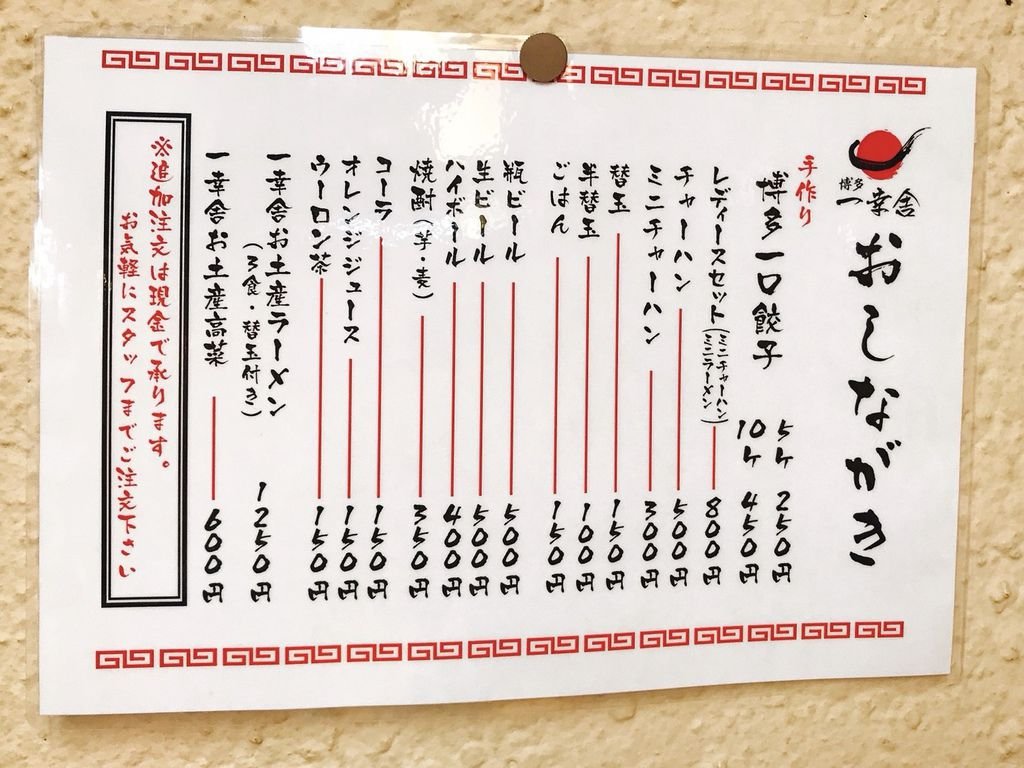 博多
一幸舎
おしながき
手作り
博多一口餃子
5ヶ 250円
10ヶ 450円
レディースセット(ミニチャーハン
ミニラーメン) 800円
チャーハン 500円
ミニチャーハン 300円
替玉 150円
半替玉 100円
ごはん 150円
瓶ビール 500円
生ビール 500円
ハイボール 400円
焼酎(芋・麦) 350円
コーラ 150円
オレンジジュース 150円
ウーロン茶 150円
一幸舎お土産ラーメン
(3食・替玉付き) 1250円
一幸舎お土産高菜 600円
※追加注文は現金で承ります。
お気軽にスタッフまでご注文下さい